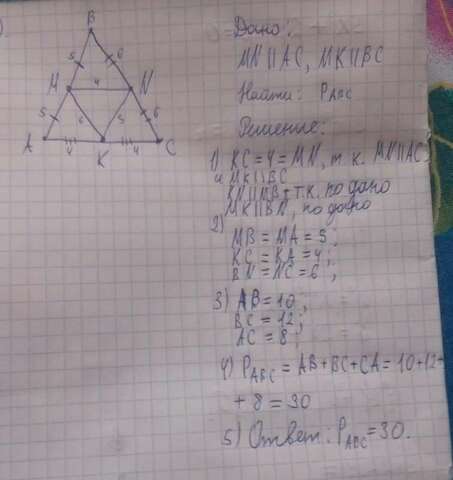 B
5 6
M 4 N
5 6 5 6
A 4 K 4 C
Дано:
MN || AC, MK || BC
Найти: P ABC
Решение:
1) KC = 4 = MN, т.к. MN || AC
и MK || BC
KN || MB т.к. по дано
MK || BN, по дано
2)
MB = MA = 5;
KC = KA = 4;
BN = NC = 6;
3) AB = 10;
BC = 12;
AC = 8;
4) P ABC = AB + BC + CA = 10 + 12 +
+ 8 = 30
5) Ответ: P ABC = 30.